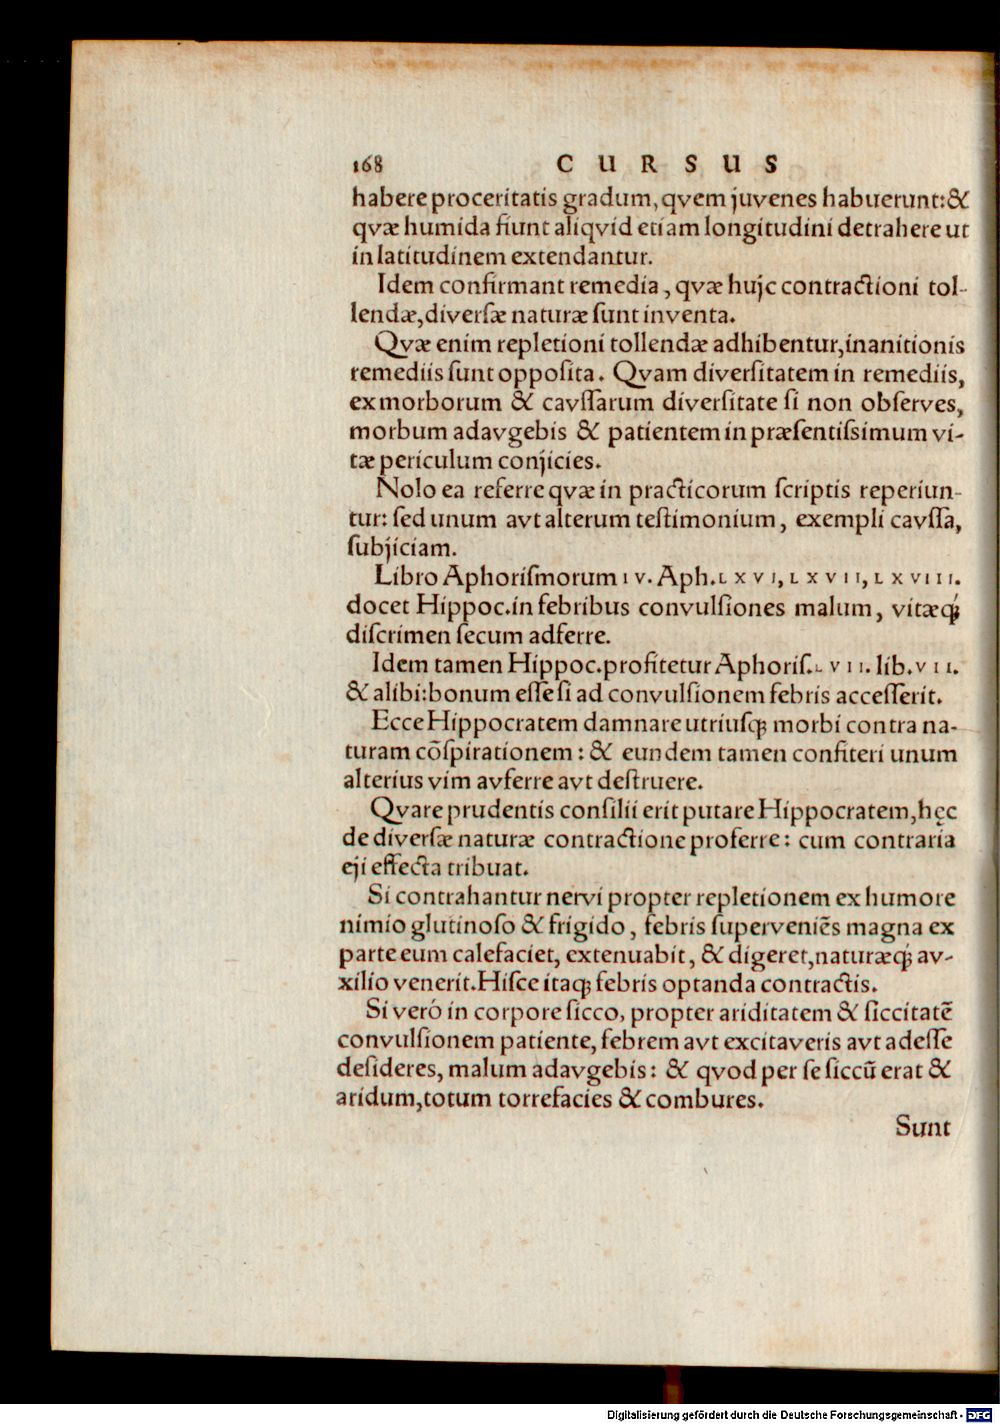 168 CURSUS
habere proceritatis gradum, qvem juvenes habuerunt: &
qvæ humida fiunt aliqvid etiam longitudini detrahere ut
in latitudinem extendantur.
Idem confirmant remedia, qvæ hujc contractioni tol-
lendæ, diverſæ naturæ ſunt inventa.
Qvæ enim repletioni tollendæ adhibentur, inanitionis
remediis ſunt oppoſita. Qvam diverſitatem in remediis,
ex morborum & cavſſarum diverſitate ſi non obſerves,
morbum adavgebis & patientem in præſentiſsimum vi-
tæ periculum conjicies.
Nolo ea referre qvæ in practicorum ſcriptis reperiun-
tur: ſed unum avt alterum teſtimonium, exempli cavſſa,
ſubjiciam.
Libro Aphoriſmorum IV. Aph. LXVI, LXVII, LXVIII.
docet Hippoc. in febribus convulſiones malum, vitæq́;
diſcrimen ſecum adferre.
Idem tamen Hippoc. profitetur Aphoriſ. LVII. lib. VII.
& alibi: bonum eſſe ſi ad convulſionem febris acceſſerit.
Ecce Hippocratem damnare utriuſq; morbi contra na-
turam cõſpirationem: & eundem tamen confiteri unum
alterius vim avferre avt deſtruere.
Qvare prudentis conſilii erit putare Hippocratem, hęc
de diverſæ naturæ contractione proferre: cum contraria
eji effecta tribuat.
Si contrahantur nervi propter repletionem ex humore
nimio glutinoſo & frigido, febris ſuperveniẽs magna ex
parte eum calefaciet, extenuabit, & digeret, naturæq́; av-
xilio venerit. Hiſce itaq; febris optanda contractis.
Si veró in corpore ſicco, propter ariditatem & ſiccitatẽ
convulſionem patiente, febrem avt excitaveris avt adeſſe
deſideres, malum adavgebis: & qvod per ſe ſiccũ erat &
aridum, totum torrefacies & combures.
Sunt
Digitalisierung gefördert durch die Deutsche Forschungsgemeinschaft - DFG